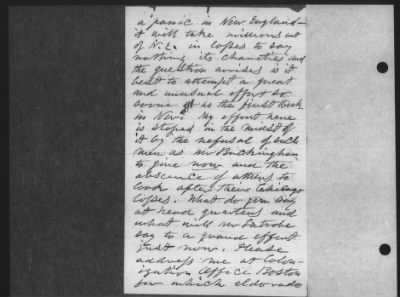 a panic in New England -
it will take millions out
of N.E. in losses to say
nothing its charities and
the question arises is it
best to attempt a great
and unusual effort so
soon as the first week
in Nov. My effort here
is stoped in the midst of
it by the refusal of such
men as Mr Buckingham
to give now and the
abscence of others to
look after their Chicago
losses. What do you say
at head quarters and
what will Mr Latrobe
say to a grand effort
just now. Please
address me at Colon-
ization Office Boston
in which eldorado